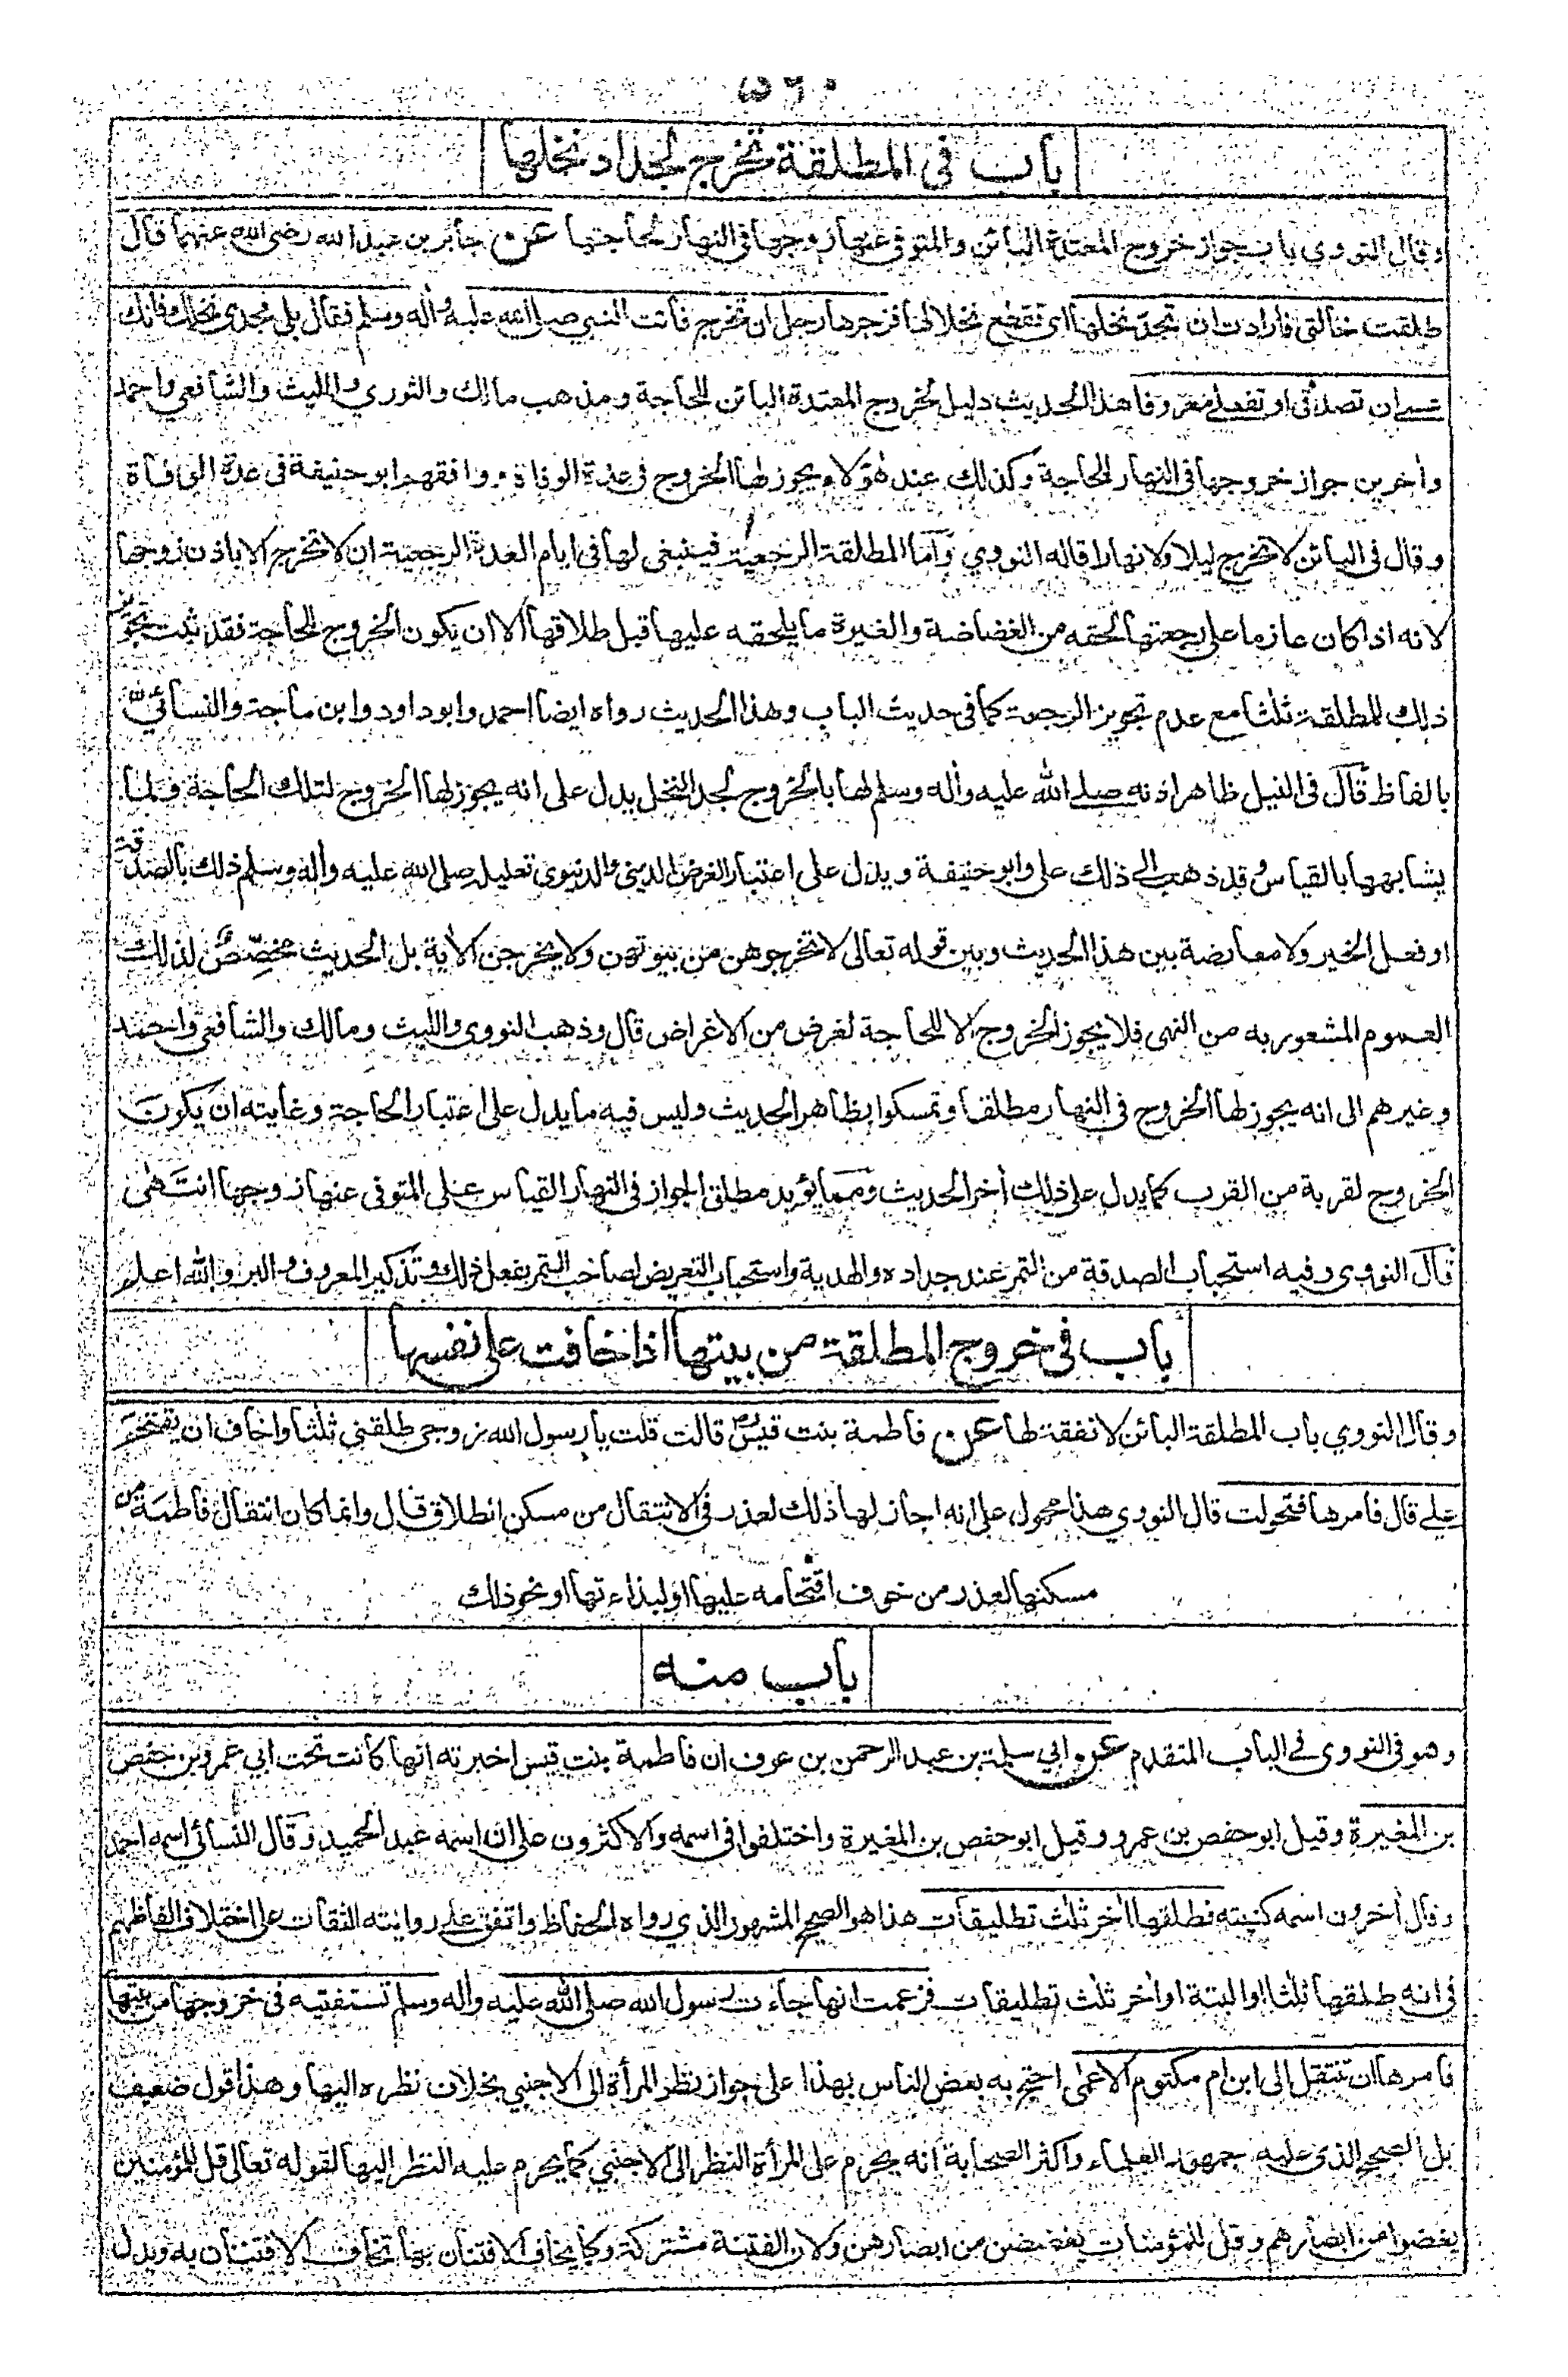 ٥٦٠
باب في المطلقة تخرج لجداد نخلها
وقال النووي باب جواز خروج المعتدة البائن والمتوفى عنها زوجها في النهار لحاجتها عن جابر بن عبد الله رضي الله عنهما قال
طلقت خالتي فأرادت ان تجد نخلها اى تقطع نخلا لها فزجرها رجل ان تخرج فأتت النبي صلى الله عليه وأله وسلم فقال بلى فجدي نخلك فانك
عسى ان تصدقي او تفعلي معروفا هذا الحديث دليل لخروج المعتدة البائن للحاجة ومذهب مالك والثوري والليث والشافعي واحمد
وأخرين جواز خروجها في النهار للحاجة وكذلك عند هؤلاء يجوز لها الخروج في عدة الوفاة ووافقهم ابو حنيفة في عدة الوفاة
وقال في البائن لا تخرج ليلا ولا نهارا قاله النووي وأما المطلقة الرجعية فينبغي لها في ايام العدة الرجعية ان لا تخرج الا باذن زوجها
لانه اذا كان عازما على رجعتها لحقه من الغضاضة والغيرة ما يلحقه عليها قبل طلاقها الا ان يكون الخروج للحاجة فقد ثبت تجويز
ذلك للمطلقة ثلثا مع عدم تجويز الرجعة كما في حديث الباب وهذا الحديث رواه ايضا احمد وابو داود وابن ماجة والنسائي
بالفاظ قال في النيل ظاهر اذنه صلى الله عليه وأله وسلم لها بالخروج لجد النخل يدل على انه يجوز لها الخروج لتلك الحاجة ولما
يشابهها بالقياس وقد ذهب الى ذلك على وابو حنيفة ويدل على اعتبار الغرض الديني والدنيوي تعليله صلى الله عليه وأله وسلم ذلك بالصدقة
او فعل الخير ولا معارضة بين هذا الحديث وبين قوله تعالى لا تخرجوهن من بيوتهن ولا يخرجن الأية بل الحديث مخصص لذلك
العموم المشعور به من النهى فلا يجوز الخروج الا للحاجة لغرض من الاغراض قال وذهب النووي والليث ومالك والشافعي واحمد
وغيرهم الى انه يجوز لها الخروج في النهار مطلقا وتمسكوا بظاهر الحديث وليس فيه ما يدل على اعتبار الحاجة وغايته ان يكون
الخروج لقربة من القرب كما يدل على ذلك أخر الحديث ومما يؤيد مطلق الجواز في النهار القياس على المتوفى عنها زوجها انتهى
قال النووي وفيه استحباب الصدقة من التمر عند جداده والهدية واستحباب التعريض لصاحب التمر بفعل ذلك وتذكير المعروف والبر والله اعلم
باب في خروج المطلقة من بيتها اذا خافت على نفسها
وقال النووي باب المطلقة البائن لا نفقة لها عن فاطمة بنت قيس قالت قلت يا رسول الله زوجي طلقني ثلثا واخاف ان يقتحم
على قال فامرها فتحولت قال النووي هذا محمول على انه اجاز لها ذلك لعذر في الانتقال من مسكن الطلاق قال وانما كان انتقال فاطمة من
مسكنها لعذر من خوف اقتحامه عليها او لبذاءتها او نحو ذلك
باب منه
وهو في النووي في الباب المتقدم عن ابي سلمة بن عبد الرحمن بن عوف ان فاطمة بنت قيس اخبرته انها كانت تحت ابي عمرو بن حفص
بن المغيرة وقيل ابو حفص بن عمرو وقيل ابو حفص بن المغيرة واختلفوا في اسمه والاكثرون على ان اسمه عبد الحميد وقال النسائي اسمه احمد
وقال أخرون اسمه كنيته فطلقها أخر ثلث تطليقات هذا هو الصحيح المشهور الذي رواه الحفاظ واتفق على روايته الثقات على اختلاف الفاظهم
في انه طلقها ثلثا او البتة او أخر ثلث تطليقات فزعمت انها جاءت رسول الله صلى الله عليه وأله وسلم تستفتيه في خروجها من بيتها
فامرها ان تنتقل الى ابن ام مكتوم الاعمى احتج به بعض الناس بهذا على جواز نظر المرأة الى الاجنبي بخلاف نظره اليها وهذا قول ضعيف
بل الصحيح الذي عليه جمهور العلماء واكثر الصحابة انه يحرم على المرأة النظر الى الاجنبي كما يحرم عليه النظر اليها لقوله تعالى قل للمؤمنين
يغضوا من ابصارهم وقل للمؤمنات يغضضن من ابصارهن ولان الفتنة مشتركة وكما يخاف الافتتان بها تخاف الافتتان به ويدل